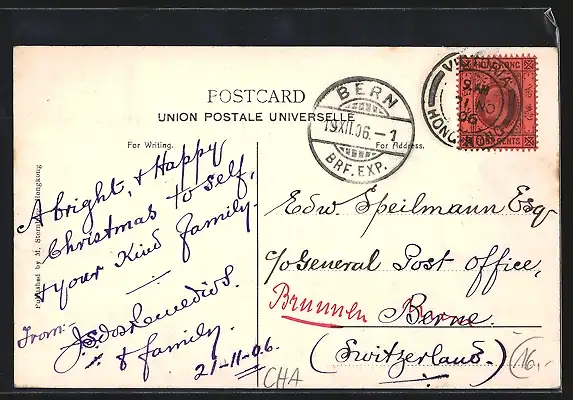 POSTCARD
UNION POSTALE UNIVERSELLE
For Writing.
For Address.
BERN
19.XII.06. - 1
BRF. EXP.
VICTORIA
21 NO
06
HONG KONG
HONG KONG
CENTS
Published by M. Sternberg, Hongkong
A bright, & Happy
Christmas to self,
& your Kind family.
From:-
& family.
21-11-06.
Edw Speilmann Esq
c/o General Post Office,
Brunnen
Berne.
(Switzerland.)
CHA
16,-